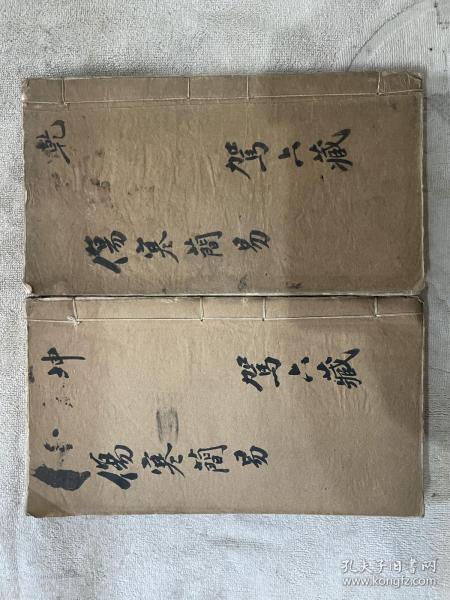 乾
駕六藏
傷寒簡易
坤
駕六藏
傷寒簡易
孔夫子旧书网
www.kongfz.com